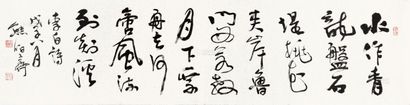 水作青
龍盤石
堤桃花
夾岸魯
門西若教
月下乘
舟去何
啻風流
到剡溪
李白詩
戊子八月
熊伯齊